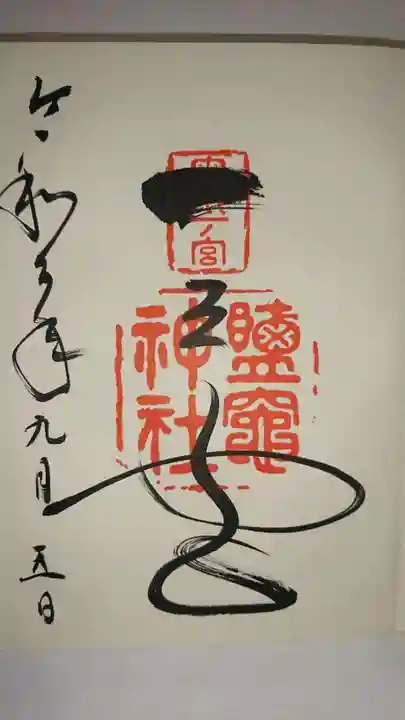 一之宮
鹽竈
神社
令和 年九月五日